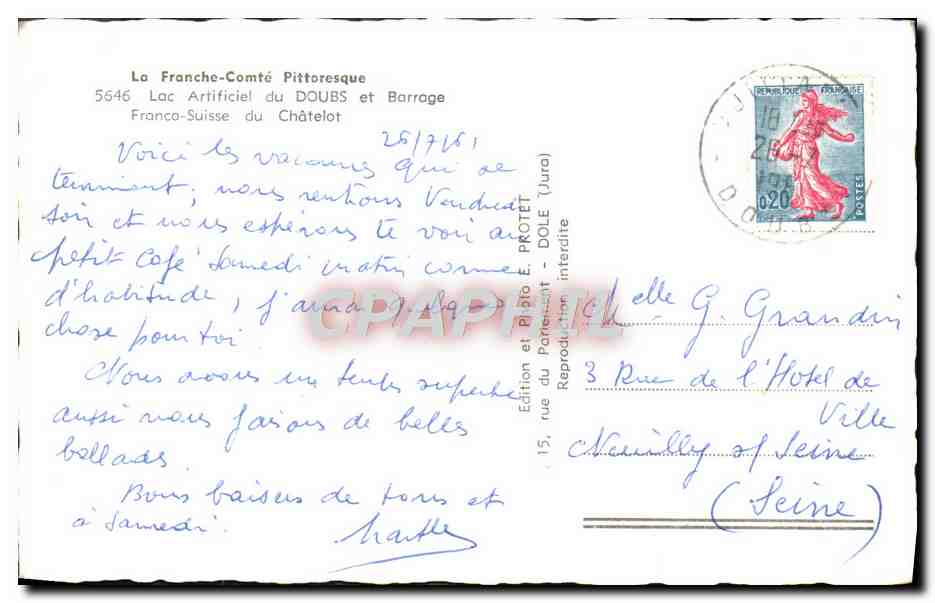 La Franche-Comté Pittoresque
5646 Lac Artificiel du DOUBS et Barrage
Franco-Suisse du Châtelot
26/7/61
Voici les vacances qui se
terminent ; nous rentrons Vendredi
soir et nous espérons te voir au
petit café Samedi matin comme
d'habitude, j'aurai quelque
chose pour toi.
Nous avons un temps superbe
aussi nous faisons de belles
ballades.
Bons baisers de tous et
à Samedi.
Edition et Photo E. PROTET
15, rue du Parlement - DOLE (Jura)
Reproduction interdite
REPUBLIQUE FRANÇAISE
0,20
POSTES
DOUBS
CPAPHIL
Melle G. Grandin
3 Rue de l'Hotel de
Ville
Neuilly s/ Seine
(Seine)